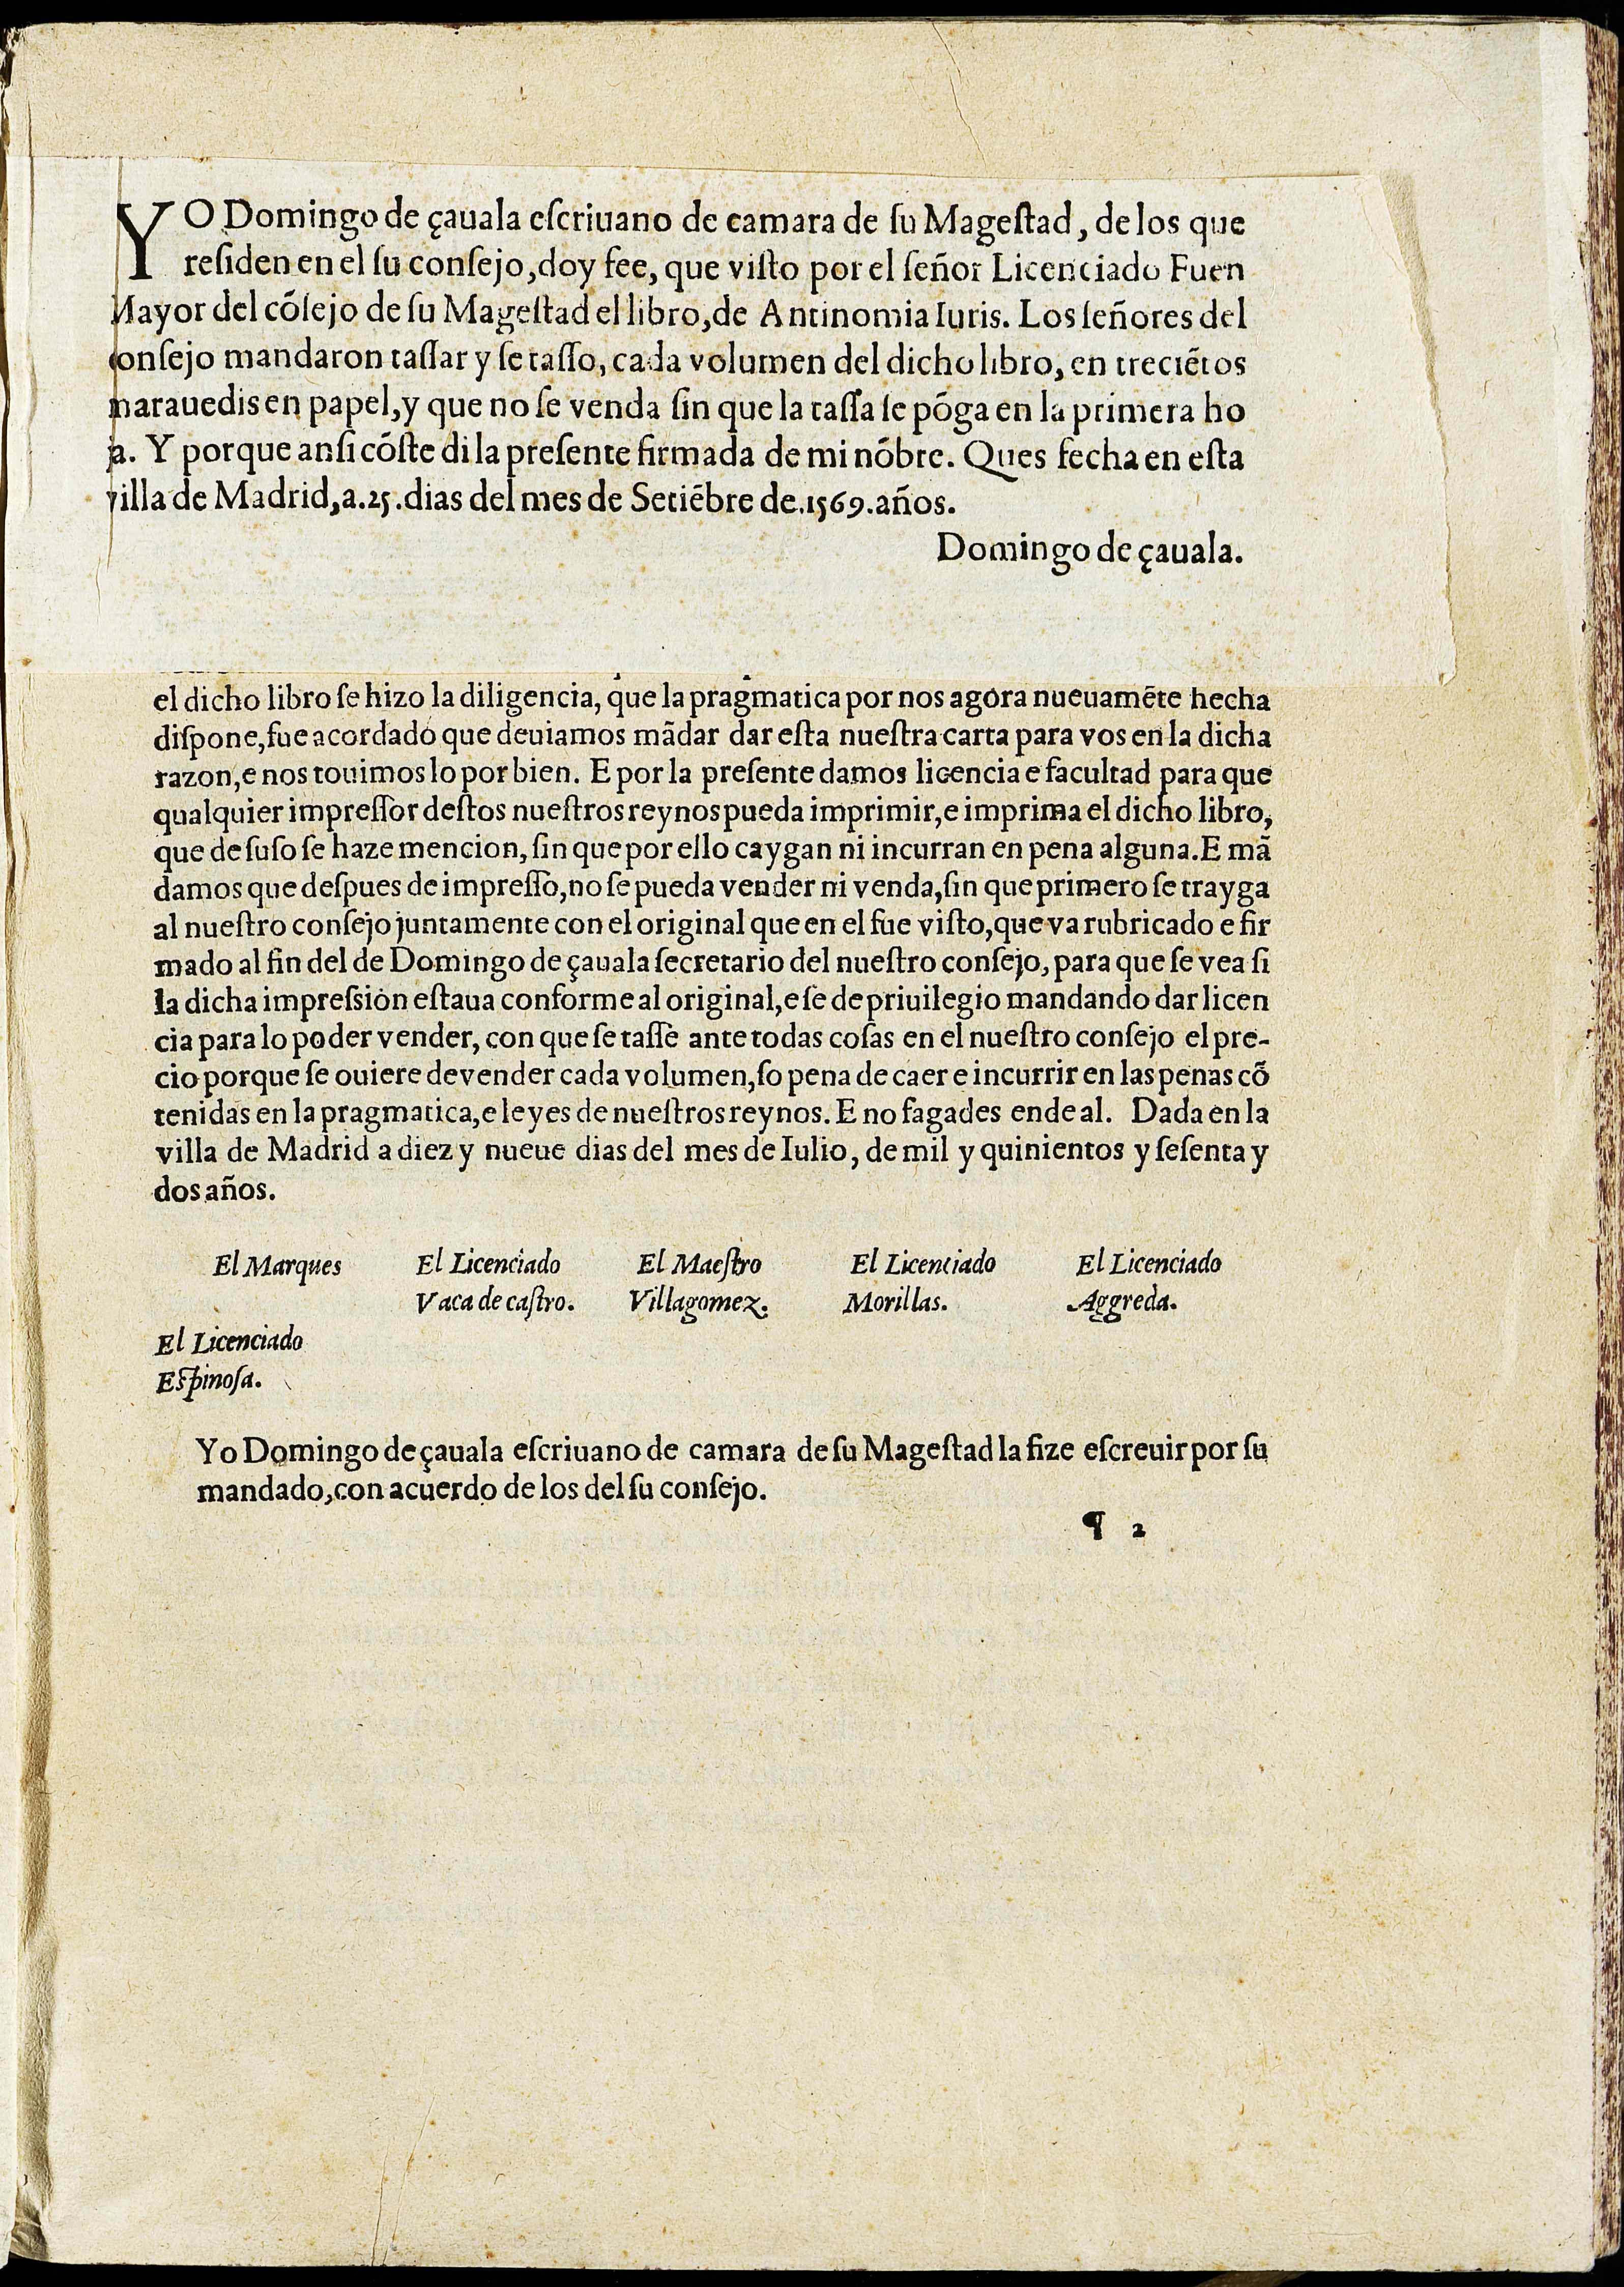 YO Domingo de çauala eſcriuano de camara de ſu Mageſtad, de los que
reſiden en el ſu conſejo, doy fee, que viſto por el ſeñor Licenciado Fuen
Mayor del cõſejo de ſu Mageſtad el libro, de Antinomia Iuris. Los ſeñores del
conſejo mandaron taſſar y ſe taſſo, cada volumen del dicho libro, en treciẽtos
marauedis en papel, y que no ſe venda ſin que la taſſa ſe põga en la primera ho
ja. Y porque anſi cõſte di la preſente firmada de mi nõbre. Ques fecha en eſta
villa de Madrid, a.25.dias del mes de Setiẽbre de.1569.años.
Domingo de çauala.
el dicho libro ſe hizo la diligencia, que la pragmatica por nos agora nueuamẽte hecha
diſpone, fue acordado que deuiamos mãdar dar eſta nueſtra carta para vos en la dicha
razon, e nos touimos lo por bien. E por la preſente damos licencia e facultad para que
qualquier impreſſor deſtos nueſtros reynos pueda imprimir, e imprima el dicho libro,
que de ſuſo ſe haze mencion, ſin que por ello caygan ni incurran en pena alguna. E mã
damos que deſpues de impreſſo, no ſe pueda vender ni venda, ſin que primero ſe trayga
al nueſtro conſejo juntamente con el original que en el fue viſto, que va rubricado e fir
mado al fin del de Domingo de çauala ſecretario del nueſtro conſejo, para que ſe vea ſi
la dicha impreſsion eſtaua conforme al original, e ſe de priuilegio mandando dar licen
cia para lo poder vender, con que ſe taſſe ante todas coſas en el nueſtro conſejo el pre-
cio porque ſe ouiere de vender cada volumen, ſo pena de caer e incurrir en las penas cõ
tenidas en la pragmatica, e leyes de nueſtros reynos. E no fagades ende al. Dada en la
villa de Madrid a diez y nueue dias del mes de Iulio, de mil y quinientos y ſeſenta y
dos años.
El Marques El Licenciado El Maeſtro El Licenciado El Licenciado
Vaca de caſtro. Villagomez. Morillas. Aggreda.
El Licenciado
Eſpinoſa.
Yo Domingo de çauala eſcriuano de camara de ſu Mageſtad la fize eſcreuir por ſu
mandado, con acuerdo de los del ſu conſejo.
¶ 2